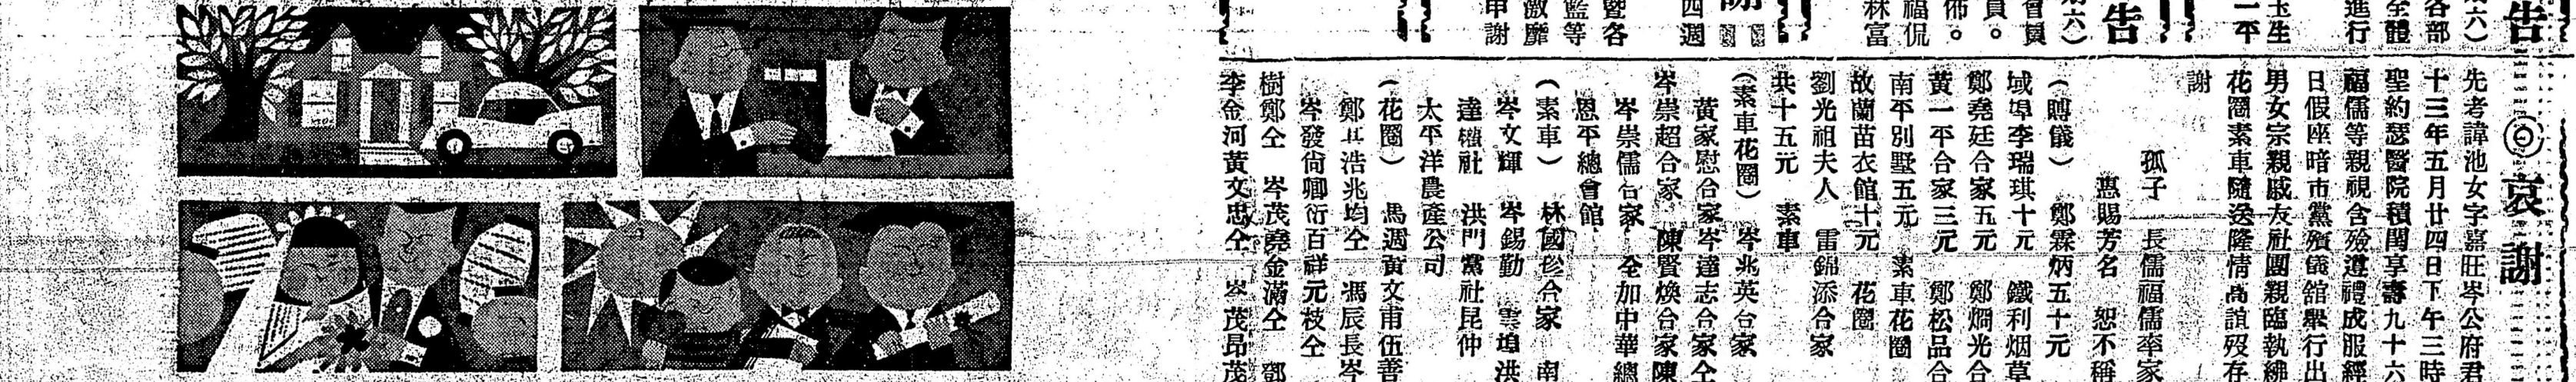 告
六)
各部
全體
進行
玉生
一平
告
六)
會員
員。
佈。
福侃
林富
四週
暨各
籃等
激靡
申謝
◎哀謝
先考諱池女字嘉旺岑公府君
十三年五月廿四日下午三時
聖約瑟醫院積閏享壽九十六
福儒等親視含殮遵禮成服經
日假座暗市黨殯儀舘舉行出
男女宗親戚友社團親臨執紼
花圈素車隨送隆情高誼歿存
謝
孤子 長儒福儒率家
惠賜芳名 恕不稱
(賻儀) 鄭霖炳五十元
域埠李瑞琪十元 鐵利烟草
鄭堯廷合家五元 鄭炯光合
黃一平合家三元 鄭松品合
南平別墅五元 素車花圈
故蘭苗衣館十元 花圈
劉光祖夫人 雷錦添合家
共十五元 素車
(素車花圈) 岑兆英合家
黃家慰合家岑達志合家仝
岑崇超合家 陳賢煥合家陳
岑崇儒合家 全加中華總
恩平總會館
(素車) 林國珍合家 南
岑文輝 岑錫勤 雲埠洪
達權社 洪門黨社昆仲
太平洋農產公司
(花圈) 馬週黃文甫伍善
鄭其浩兆均仝 馮辰長岑
岑發尙卿衍百祥元枝仝
樹鄭仝 岑茂堯金滿仝 鄧
李金河黃文忠仝 岑茂昂茂